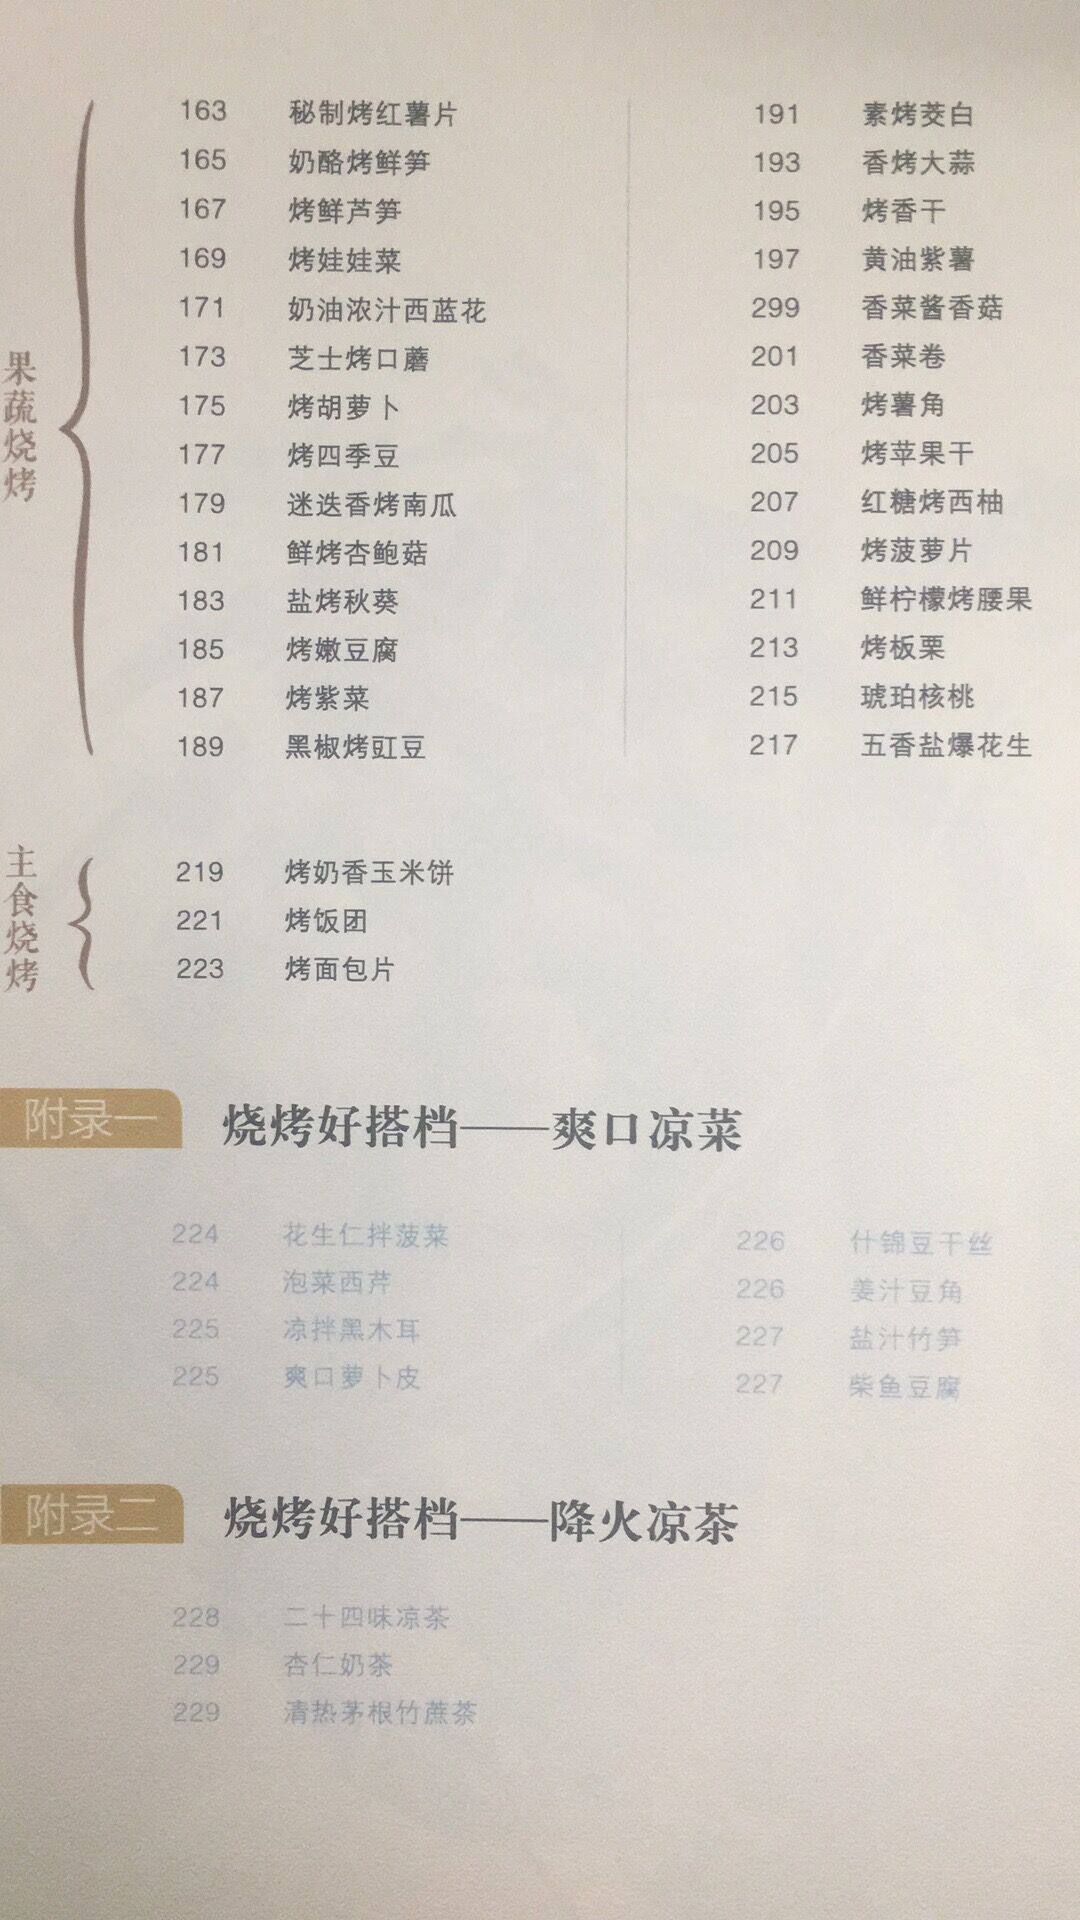 果蔬烧烤
163 秘制烤红薯片
165 奶酪烤鲜笋
167 烤鲜芦笋
169 烤娃娃菜
171 奶油浓汁西蓝花
173 芝士烤口蘑
175 烤胡萝卜
177 烤四季豆
179 迷迭香烤南瓜
181 鲜烤杏鲍菇
183 盐烤秋葵
185 烤嫩豆腐
187 烤紫菜
189 黑椒烤豇豆
191 素烤茭白
193 香烤大蒜
195 烤香干
197 黄油紫薯
299 香菜酱香菇
201 香菜卷
203 烤薯角
205 烤苹果干
207 红糖烤西柚
209 烤菠萝片
211 鲜柠檬烤腰果
213 烤板栗
215 琥珀核桃
217 五香盐爆花生
主食烧烤
219 烤奶香玉米饼
221 烤饭团
223 烤面包片
附录一 烧烤好搭档——爽口凉菜
224 花生仁拌菠菜
224 泡菜西芹
225 凉拌黑木耳
225 爽口萝卜皮
226 什锦豆干丝
226 姜汁豆角
227 盐汁竹笋
227 柴鱼豆腐
附录二 烧烤好搭档——降火凉茶
228 二十四味凉茶
229 杏仁奶茶
229 清热茅根竹蔗茶